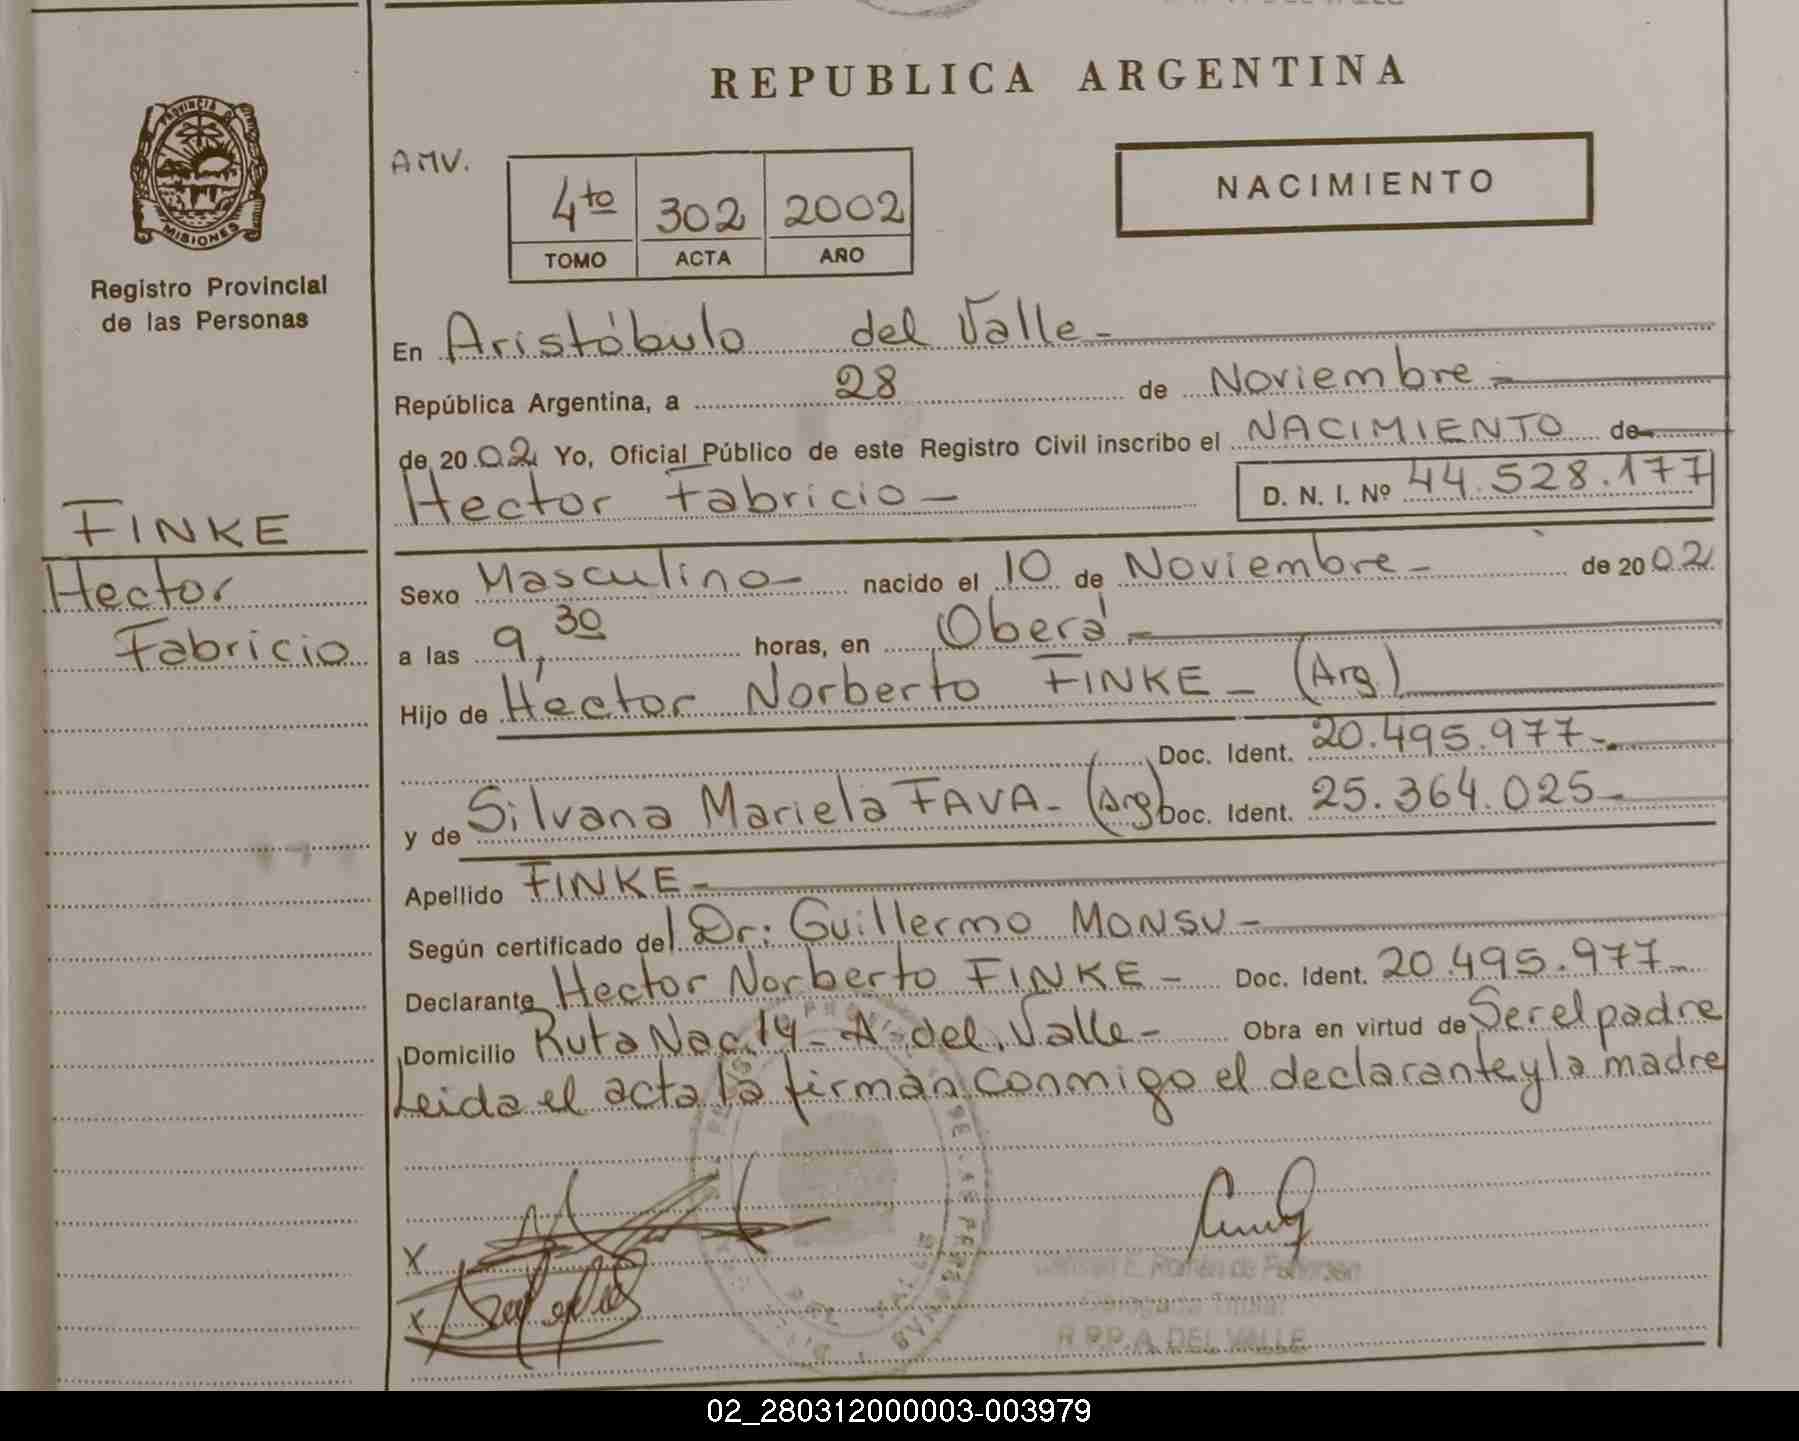 REPUBLICA ARGENTINA
PROVINCIA DE
MISIONES
Registro Provincial
de las Personas
AMV.
4to 302 2002
TOMO ACTA AÑO
NACIMIENTO
En Aristóbulo del Valle-
República Argentina, a 28 de Noviembre-
de 2002 Yo, Oficial Público de este Registro Civil inscribo el NACIMIENTO de
Hector Fabricio- D. N. I. Nº 44.528.177
FINKE
Hector
Fabricio
Sexo Masculino- nacido el 10 de Noviembre- de 2002
a las 9,30 horas, en Oberá-
Hijo de Hector Norberto FINKE- (Arg)
Doc. Ident. 20.495.977-
y de Silvana Mariela FAVA- (Arg) Doc. Ident. 25.364.025-
Apellido FINKE-
Según certificado del Dr: Guillermo MONSU-
Declarante Hector Norberto FINKE- Doc. Ident. 20.495.977-
Domicilio Ruta Nac 14- A. del Valle- Obra en virtud de Ser el padre
Leida el acta la firman conmigo el declarante y la madre
X
X
Delegada Titular
R.P.P. A. DEL VALLE
02_280312000003-003979